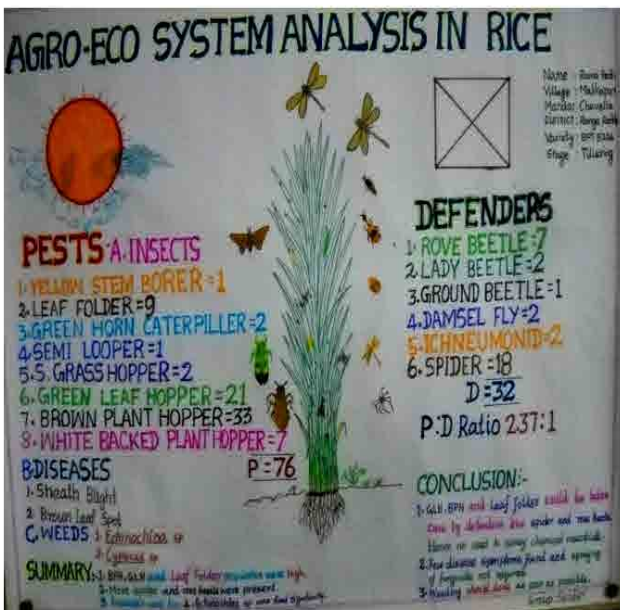 AGRO-ECO SYSTEM ANALYSIS IN RICE
Name :
Village :
Mandal: Chevella
District: Ranga
Variety: BPT
Stage :
PESTS-A.INSECTS
1.YELLOW STEM BORER=1
2.LEAF FOLDER=9
3.GREEN HORN CATERPILLER=2
4.SEMI LOOPER=1
5.S.GRASSHOPPER=2
6.GREEN LEAF HOPPER=21
7.BROWN PLANT HOPPER=33
8.WHITE BACKED PLANT HOPPER=7
P=76
B.DISEASES
1. Sheath Blight
2. Brown Leaf Spot
C.WEEDS 1. Echinochloa sp
2. Cyperus sp
SUMMARY:-1. BPH, GLH and Leaf Folder population were high.
2. Most spider and were present.
DEFENDERS
1.ROVE BEETLE=7
2.LADY BEETLE=2
3.GROUND BEETLE=1
4.DAMSEL FLY=2
5.ICHNEUMONID=2
6.SPIDER=18
D=32
P:D Ratio 2.37:1
CONCLUSION:-
1. GLH, BPH and Leaf folder could be taken
care by defenders like spider and
Hence no need to spray chemical
2. Few disease symptoms found and spraying
of fungicide not required.
3. Weeding as soon as possible.